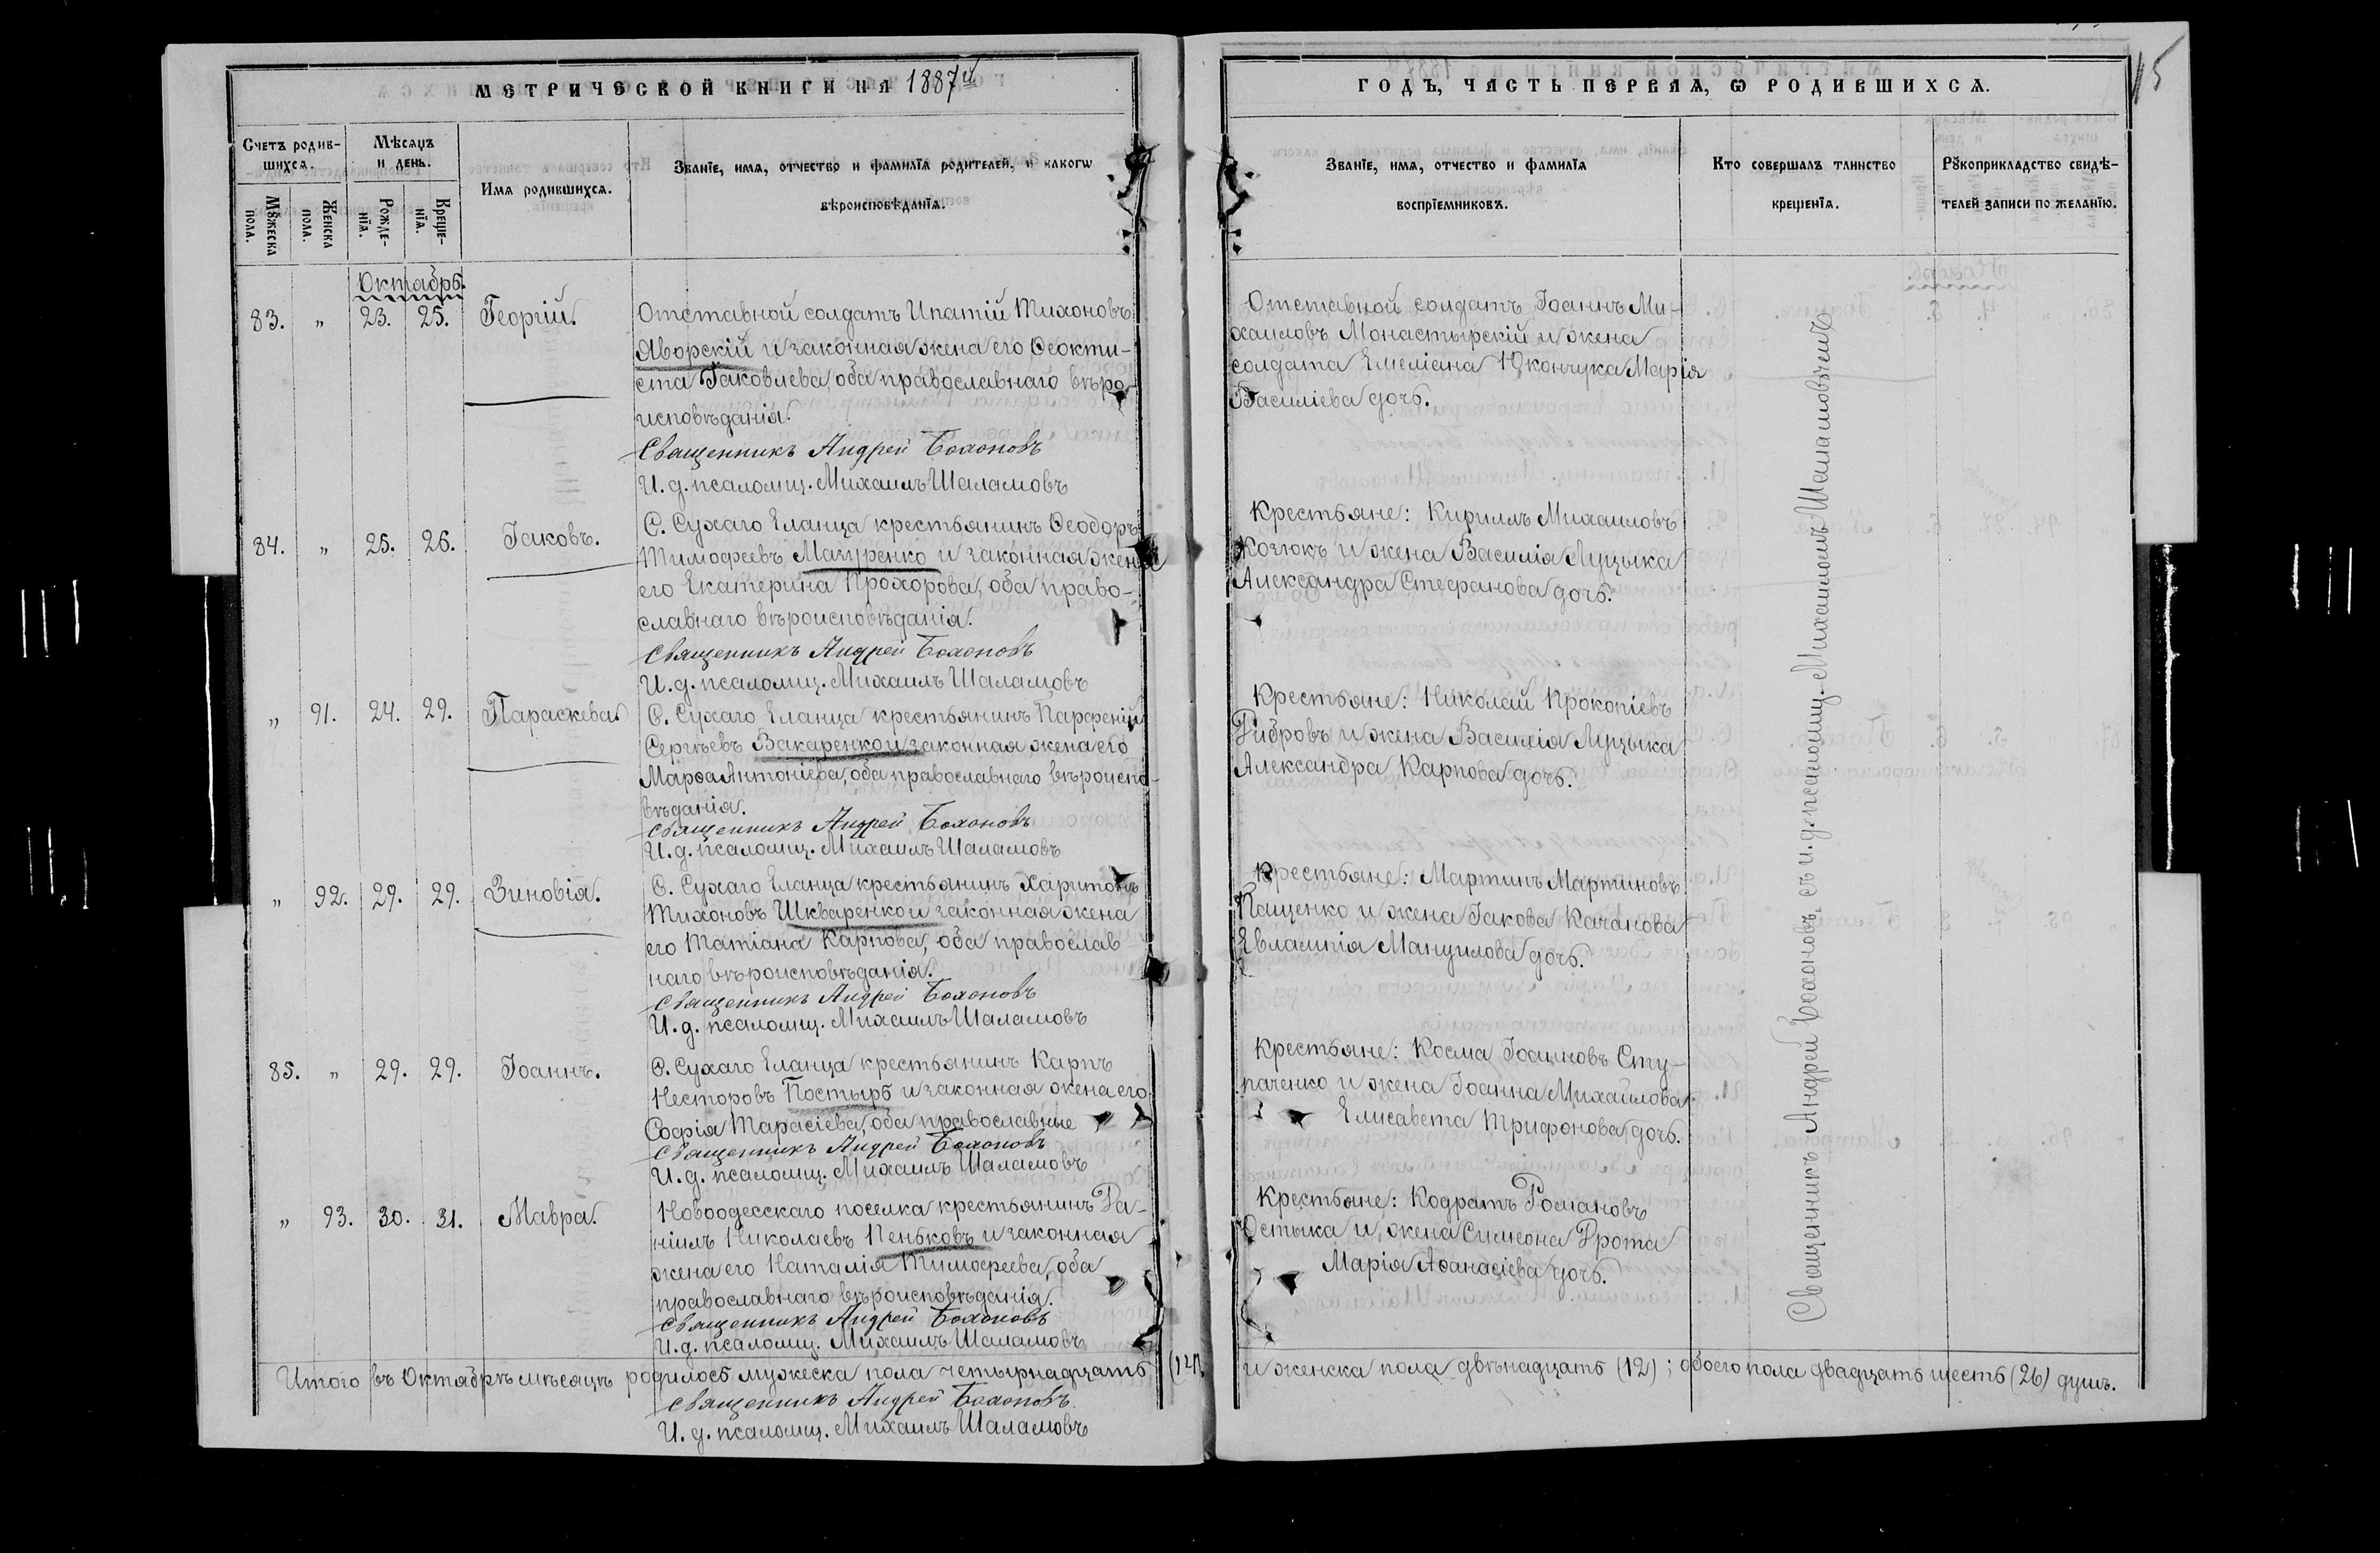 МЕТРИЧЕСКОЙ КНИГИ НА 1887й
Счетъ родив-
шихся.
Мѣсяцъ
и день.
Имя родившихся.
Званіе, имя, отчество и фамилія родителей, и какогѡ
вѣроисповѣданія.
Мꙋжеска
пола.
Женска
пола.
Рожде-
нія.
Креще-
нія.
Октябрь.
83. „ 23. 25. Георгій.
Отставной солдатъ Ипатій Тихоновъ
Яворскій и законная жена его Ѳеокти-
ста Іаковлева, оба православнаго вѣро-
исповѣданія.
Священникъ Андрей Бохоновъ
И. д. псаломщ. Михаилъ Шаламовъ
84. „ 25. 26. Іаковъ.
С. Сухаго Еланца крестьянинъ Ѳеодоръ
Тимофеевъ Мазуренко и законная жена
его Екатерина Прохорова, оба право-
славнаго вѣроисповѣданія.
Священникъ Андрей Бохоновъ
И. д. псаломщ. Михаилъ Шаламовъ
„ 91. 24. 29. Параскева.
С. Сухаго Еланца крестьянинъ Парфеній
Сергѣевъ Вакаренко и законная жена его
Марѳа Антоніева, оба православнаго вѣроиспо-
вѣданія.
Священникъ Андрей Бохоновъ
И. д. псаломщ. Михаилъ Шаламовъ
„ 92. 29. 29. Зиновія.
С. Сухаго Еланца крестьянинъ Харитонъ
Тихоновъ Шкваренко и законная жена
его Татіана Карпова, оба православ
наго вѣроисповѣданія.
Священникъ Андрей Бохоновъ
И. д. псаломщ. Михаилъ Шаламовъ
85. „ 29. 29. Іоаннъ.
С. Сухаго Еланца крестьянинъ Карпъ
Несторовъ Постырь и законная жена его
Софія Тарасіева, оба православные
Священникъ Андрей Бохоновъ
И. д. псаломщ. Михаилъ Шаламовъ
„ 93. 30. 31. Мавра.
Новоодесскаго поселка крестьянинъ Да-
ніилъ Николаевъ Пеньковъ и законная
жена его Наталія Тимофеева, оба
православнаго вѣроисповѣданія.
Священникъ Андрей Бохоновъ
И. д. псаломщ. Михаилъ Шаламовъ
Итого въ Октябрѣ мѣсяцѣ родилось мужеска пола четырнадцать (14)
Священникъ Андрей Бохоновъ
И. д. псаломщ. Михаилъ Шаламовъ
15
ГОДЪ, ЧАСТЬ ПЕРВАЯ, Ѡ РОДИВШИХСЯ.
Званіе, имя, отчество и фамилія
воспріемниковъ.
Кто совершалъ таинство
крещенія.
Рꙋкоприкладство свидѣ-
телей записи по желанію.
Отставной солдатъ Іоаннъ Ми-
хаиловъ Монастырскій и жена
солдата Емеліана Юкончука Марія
Василіева дочь.
Крестьяне: Кириллъ Михаиловъ
Козюкъ и жена Василія Музыка
Александра Стефанова дочь.
Крестьяне: Николай Прокопіевъ
Рибровъ и жена Василія Музыка
Александра Карпова дочь.
Крестьяне: Мартинъ Мартиновъ
Пащенко и жена Іакова Качанова
Евлампія Мануилова дочь.
Крестьяне: Косма Іоанновъ Сту-
паченко и жена Іоанна Михайлова
Елисавета Трифонова дочь.
Крестьяне: Кодратъ Романовъ
Остыка и жена Симеона Дрота
Марія Аѳанасіева дочь.
Священникъ Андрей Бохоновъ съ и. д. псаломщ. Михаиломъ Шаламовымъ
и женска пола двѣнадцать (12); обоего пола двадцать шесть (26) душъ.